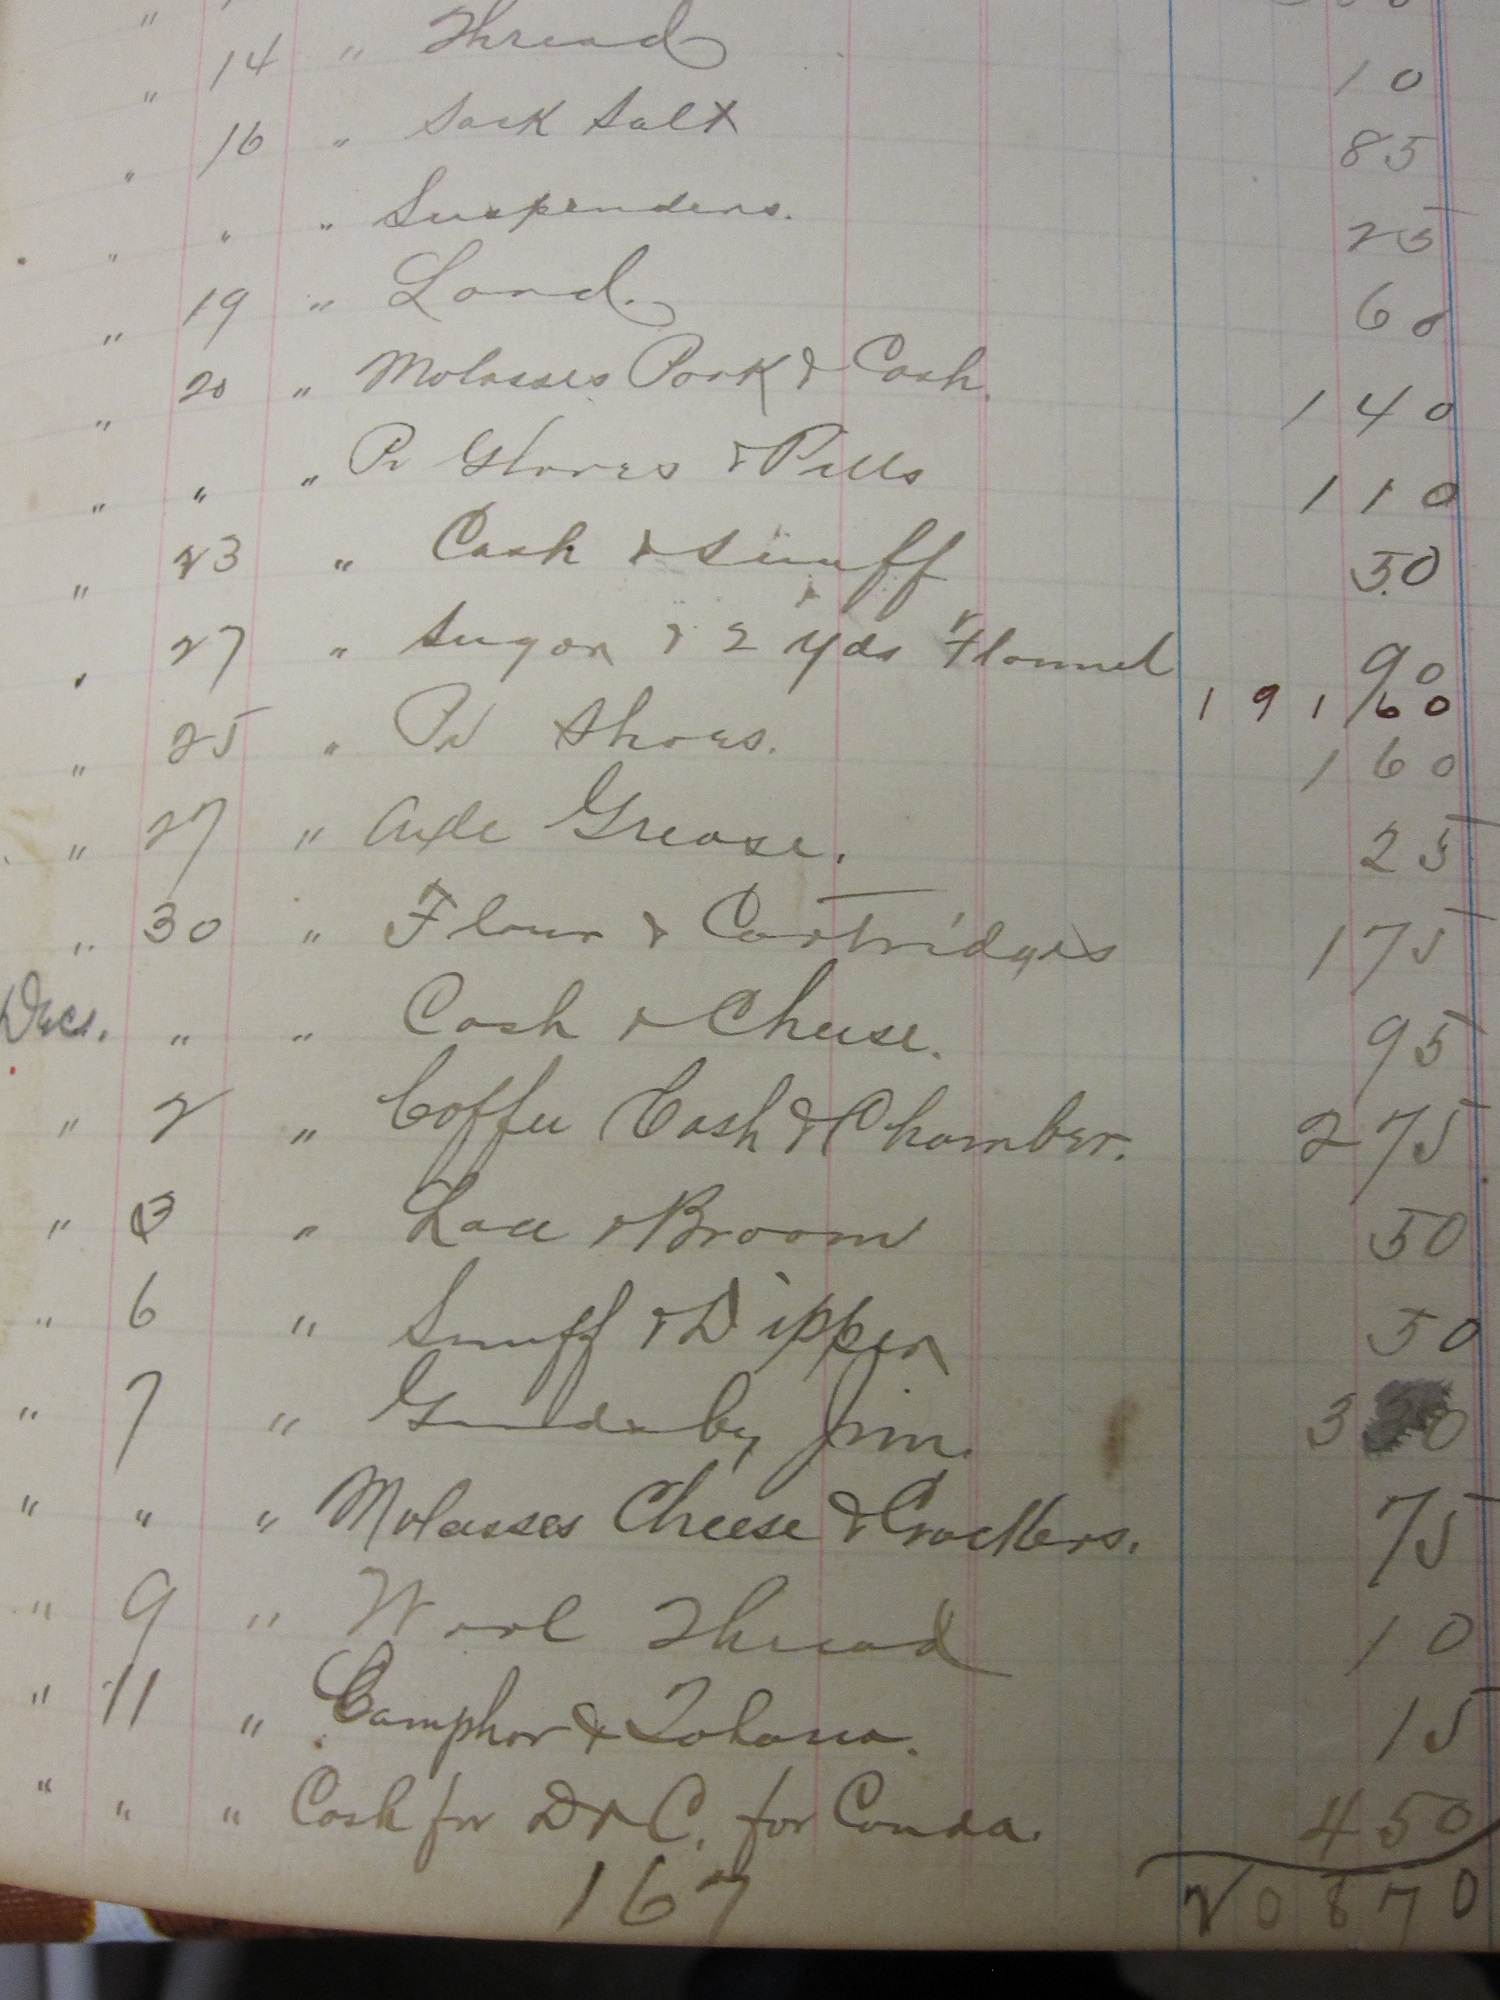 " 14 " Thread 10
" 16 " Sack Salt 85
" " " Suspenders. 25
" 19 " Lard. 60
" 20 " Molasses Pork & Cash. 1 40
" " " Pr Gloves & Pills 1 10
" 23 " Cash & Snuff 50
" 27 " Sugar & 2 yds Flannel 90
1 9 1 60
" 25 " Pr Shoes. 1 60
" 27 " Axle Grease. 25
" 30 " Flour & Cartridges 1 75
Decs. " " Cash & Cheese. 95
" 2 " Coffee Cash & Chamber. 2 75
" 3 " Lace & Broom 50
" 6 " Snuff & Dipper 50
" 7 " by Jim. 3
" " " Molasses Cheese & Crackers. 75
" 9 " Wool Thread 10
" 11 " Camphor & Tobacco. 15
" " " Cash for D & C. for Conda. 4 50
167 208 70